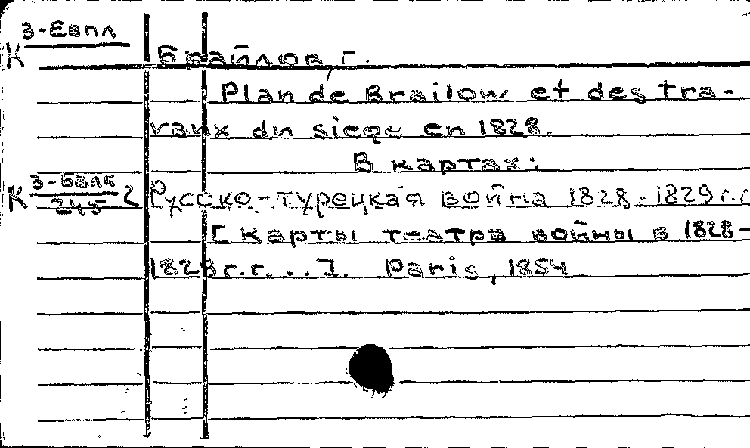 К З-Евпл
Браилов, г.
Plan de Brailow et des tra-
vaux du siege en 1828.
В картах:
К З-Евпл 2 Русско-турецкая война 1828-1829 г.г.
245
[ Карты театра войны в 1828-
1828 г.г. . . ]. Paris, 1854